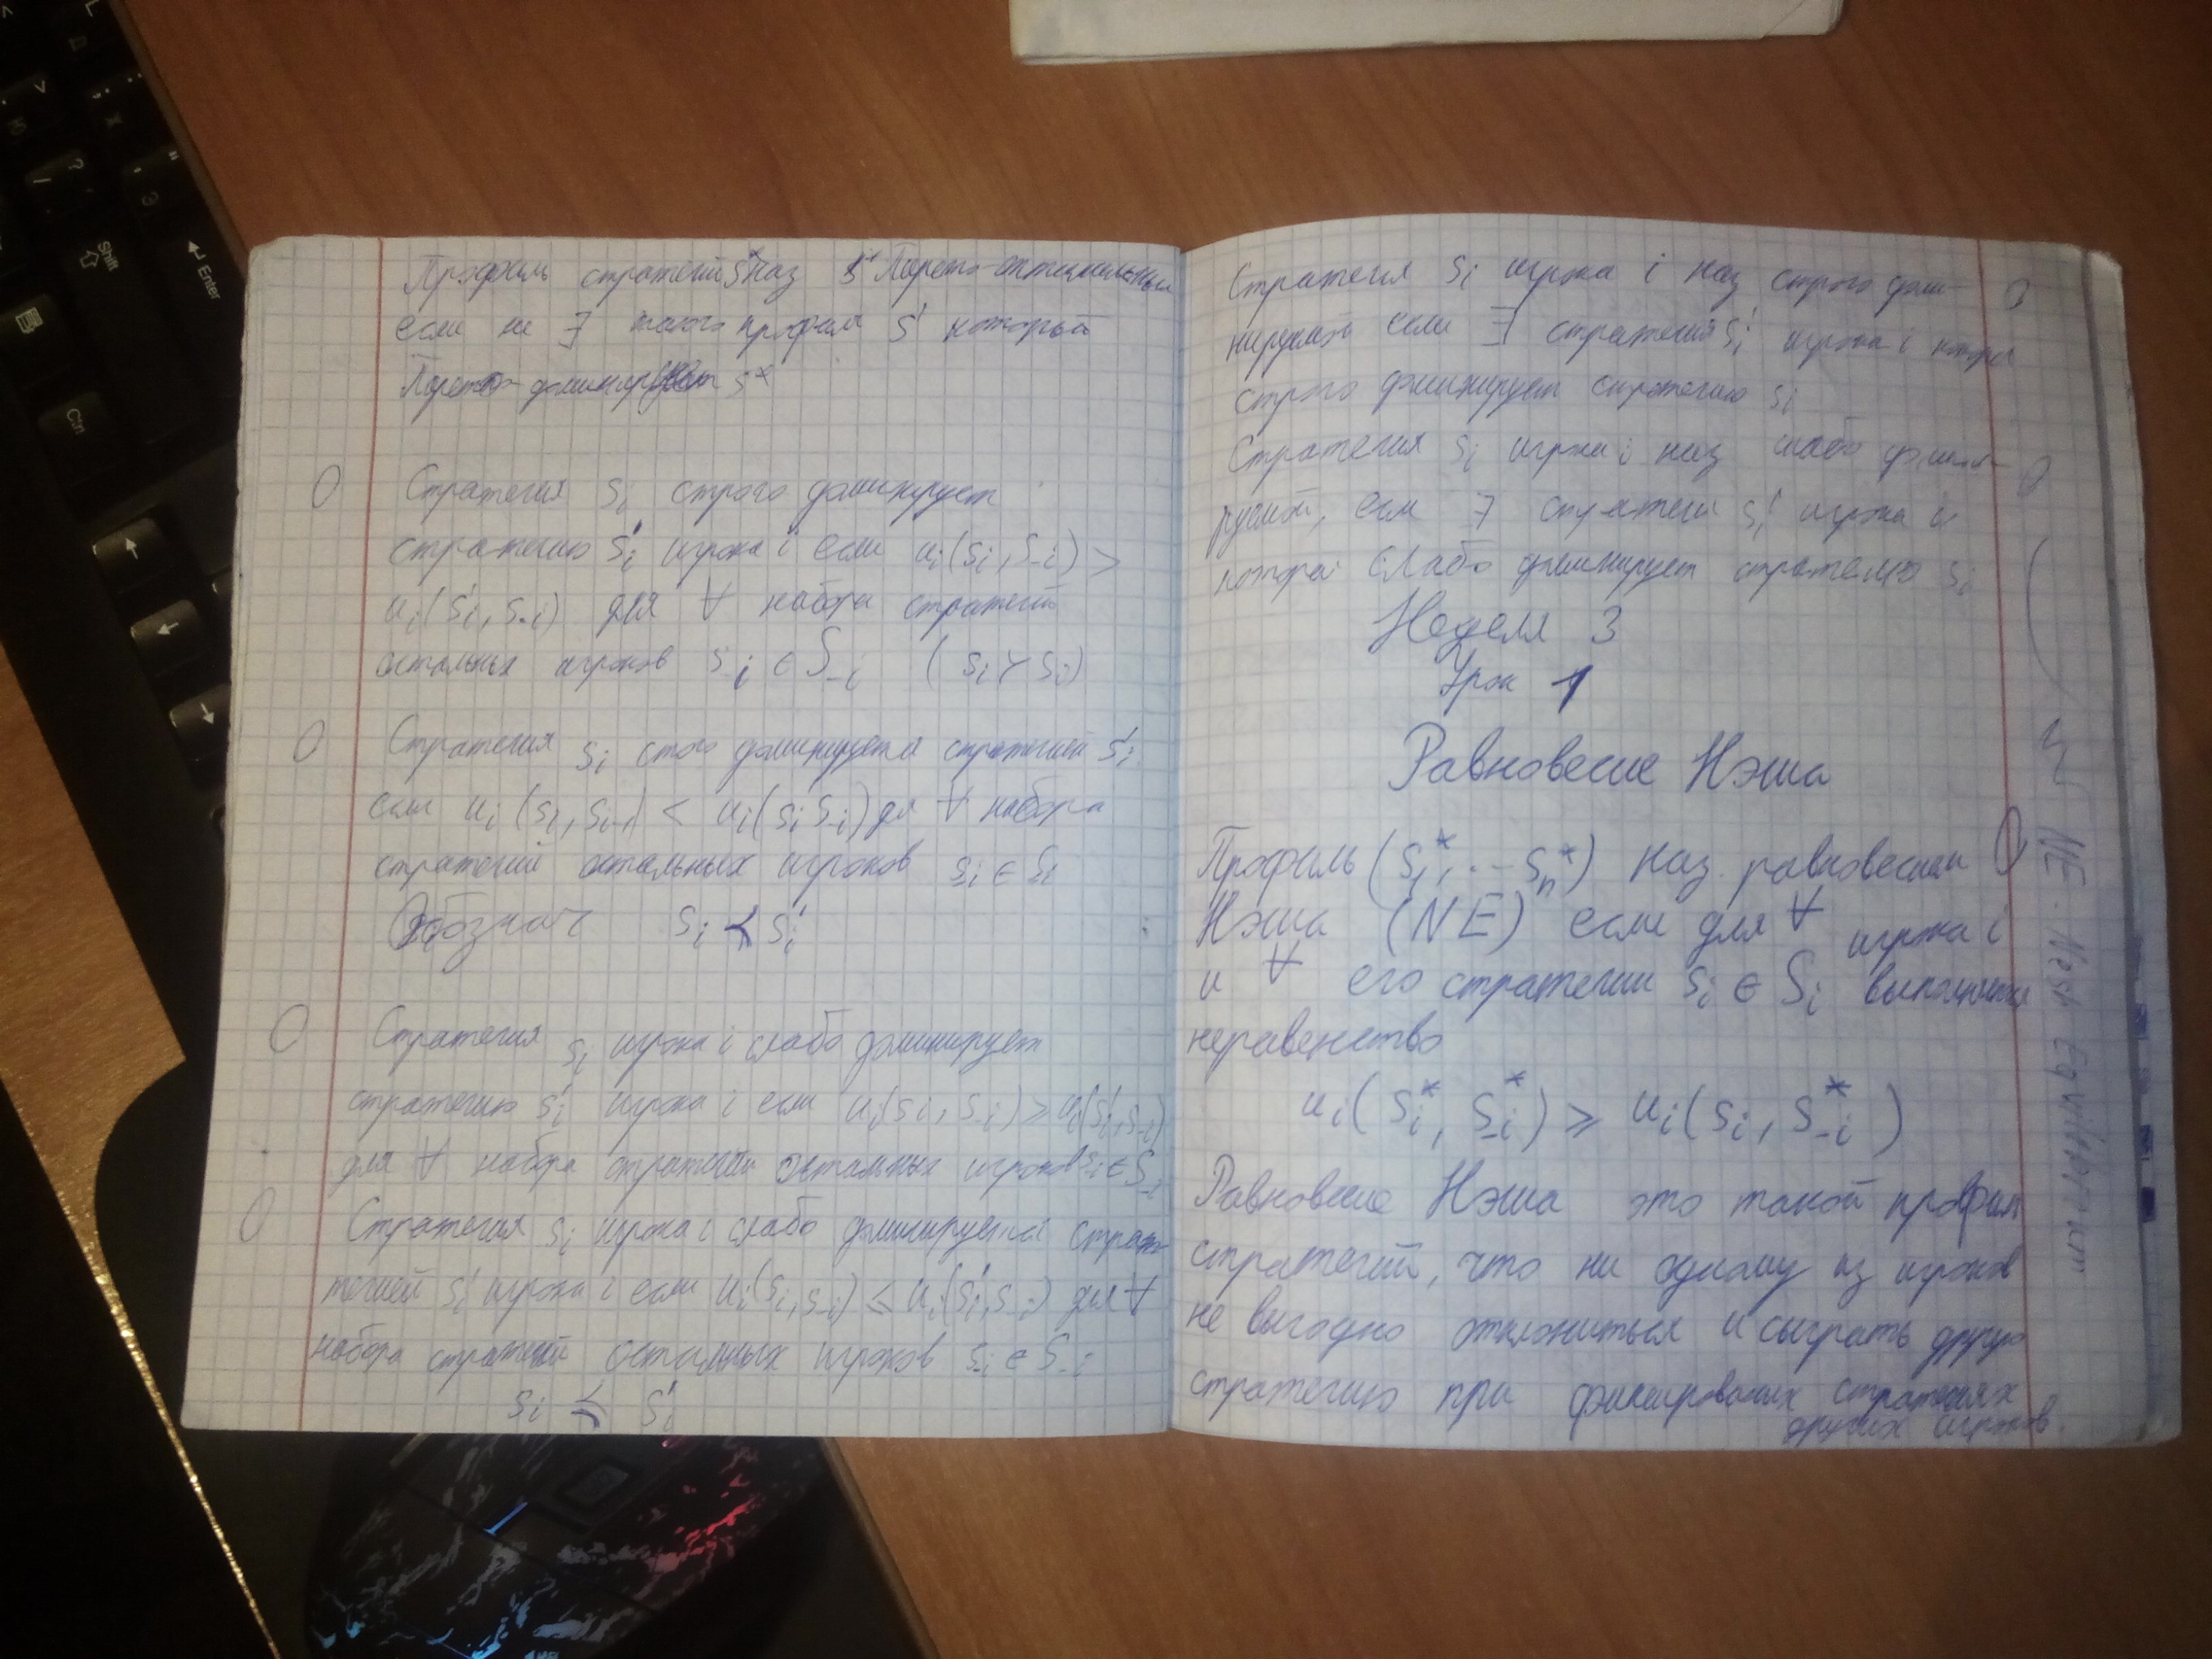 Профиль стратегий s* наз Парето-оптимальным
если не ∃ такого профиля s' который
Парето-доминирует s*
О Стратегия si строго доминирует
стратегию s'i игрока i если ui(si, s-i) >
ui(s'i, s-i) для ∀ набора стратегий
остальных игроков s-i ∈ S-i (si ≻ si)
О Стратегия si стого доминируется стратегией s'i
если ui(si, si-1) < ui(si s-i) дл ∀ набора
стратегий остальных игроков s-i ∈ S-i
Обознач si ≺ s'i
О Стратегия si игрока i слабо доминирует
стратегию s'i игрока i если ui(si, s-i) ≥ ui(s'i, s-i)
для ∀ набора стратегий остальных игроков s-i ∈ S-i
О Стратегия si игрока i слабо доминируется страте-
тегией s'i игрока i если ui(si, s-i) ≤ ui(s'i, s-i) для ∀
набора стратегий остальных игроков s-i ∈ S-i
si ≼ s'i
Стратегия si игрока i наз строго доми- О
нируемой если ∃ стратегия s'i игрока i котора
строго доминирует стратегию si
Стратегия si игрока i наз слабо домини- О
руемой, если ∃ стратеги s'i игрока i
котора слабо доминирует стратегию si
Неделя 3
Урок 1
Равновесие Нэша
Профиль (s1*, ... sn*) наз. равновесием О
Нэша (NE) если для ∀ игрока i
и ∀ его стратегии si ∈ Si выполняется
неравенство
ui(si*, s-i*) ≥ ui(si, s-i*)
Равновесие Нэша это такой профил
стратегий, что ни одному из игроков
не выгодно отклониться и сыграть другую
стратегию при фиксированых стратегиях
других игроков.
NE - Nesh Equilibrium
Shift
Enter
Ctrl